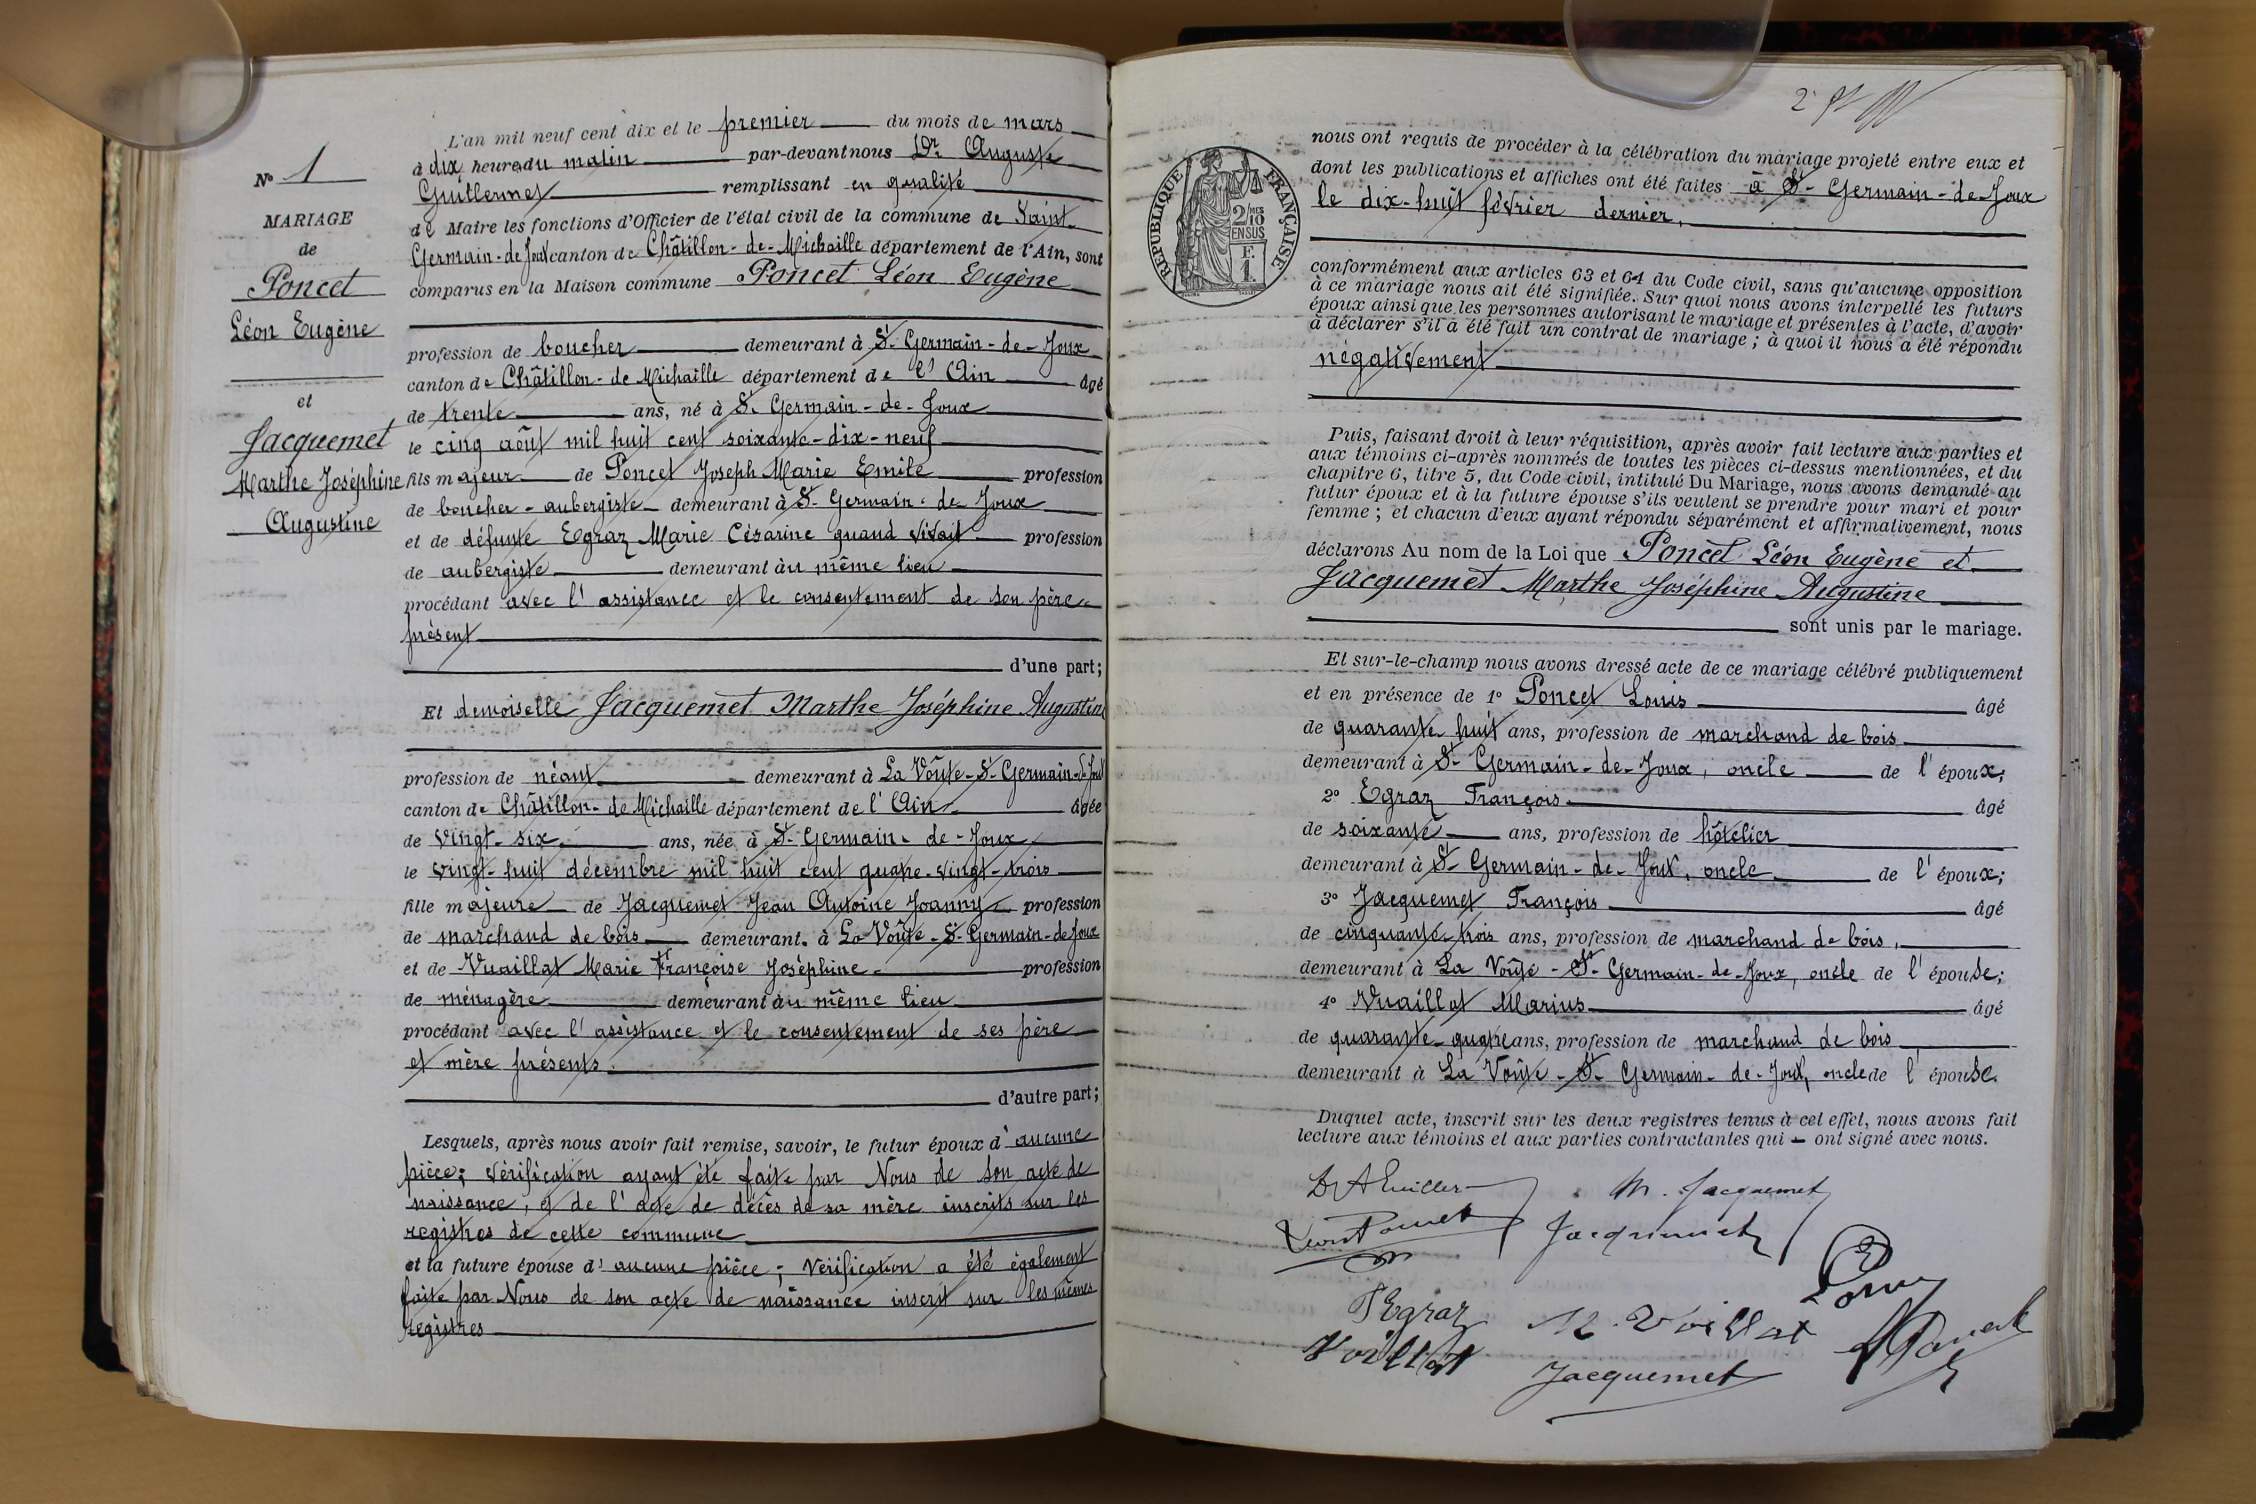 N° 1
MARIAGE
de
Poncet
Léon Eugène
et
Jacquemet
Marthe Joséphine
Augustine
L'an mil neuf cent dix et le premier du mois de mars
à dix heures du matin par-devant nous Dr Auguste
Guillermet remplissant en qualité
de Maire les fonctions d'Officier de l'état civil de la commune de Saint-
Germain-de-Joux canton de Châtillon-de-Michaille département de l'Ain, sont
comparus en la Maison commune Poncet Léon Eugène
profession de boucher demeurant à St-Germain-de-Joux
canton de Châtillon-de-Michaille département de l'Ain âgé
de trente ans, né à St-Germain-de-Joux
le cinq août mil huit cent soixante-dix-neuf
fils majeur de Poncet Joseph Marie Emile profession
de boucher-aubergiste demeurant à St-Germain-de-Joux
et de défunte Egraz Marie Césarine quand vivait profession
de aubergiste demeurant au même lieu
procédant avec l'assistance et le consentement de son père
présent
d'une part;
Et demoiselle Jacquemet Marthe Joséphine Augustine
profession de néant demeurant à La Voûte-St-Germain-de-Joux
canton de Châtillon-de-Michaille département de l'Ain âgée
de vingt-six ans, née à St-Germain-de-Joux
le vingt-huit décembre mil huit cent quatre-vingt-trois
fille majeure de Jacquemet Jean Antoine Joanny profession
de marchand de bois demeurant à La Voûte-St-Germain-de-Joux
et de Vuaillat Marie Françoise Joséphine profession
de ménagère demeurant au même lieu
procédant avec l'assistance et le consentement de ses père
et mère présents
d'autre part;
Lesquels, après nous avoir fait remise, savoir, le futur époux d'aucune
pièce; vérification ayant été faite par Nous de son acte de
naissance, et de l'acte de décès de sa mère inscrits sur les
registres de cette commune
et la future épouse d'aucune pièce; vérification a été également
faite par Nous de son acte de naissance inscrit sur les mêmes
registres
2
RÉPUBLIQUE FRANÇAISE
2/10 MES
EN SUS
F.
1.
nous ont requis de procéder à la célébration du mariage projeté entre eux et
dont les publications et affiches ont été faites à St-Germain-de-Joux
le dix-huit février dernier,
conformément aux articles 63 et 64 du Code civil, sans qu'aucune opposition
à ce mariage nous ait été signifiée. Sur quoi nous avons interpellé les futurs
époux ainsi que les personnes autorisant le mariage et présentes à l'acte, d'avoir
à déclarer s'il a été fait un contrat de mariage; à quoi il nous a été répondu
négativement
Puis, faisant droit à leur réquisition, après avoir fait lecture aux parties et
aux témoins ci-après nommés de toutes les pièces ci-dessus mentionnées, et du
chapitre 6, titre 5, du Code civil, intitulé Du Mariage, nous avons demandé au
futur époux et à la future épouse s'ils veulent se prendre pour mari et pour
femme; et chacun d'eux ayant répondu séparément et affirmativement, nous
déclarons Au nom de la Loi que Poncet Léon Eugène et
Jacquemet Marthe Joséphine Augustine
sont unis par le mariage.
Et sur-le-champ nous avons dressé acte de ce mariage célébré publiquement
et en présence de 1° Poncet Louis âgé
de quarante-huit ans, profession de marchand de bois
demeurant à St-Germain-de-Joux, oncle de l'époux;
2° Egraz François âgé
de soixante ans, profession de hôtelier
demeurant à St-Germain-de-Joux, oncle de l'époux;
3° Jacquemet François âgé
de cinquante-trois ans, profession de marchand de bois,
demeurant à La Voûte-St-Germain-de-Joux, oncle de l'épouse;
4° Vuaillat Marius âgé
de quarante-quatre ans, profession de marchand de bois
demeurant à La Voûte-St-Germain-de-Joux, oncle de l'épouse.
Duquel acte, inscrit sur les deux registres tenus à cet effet, nous avons fait
lecture aux témoins et aux parties contractantes qui — ont signé avec nous.
M. Jacquemet
Léon Poncet Jacquemet
F Egraz M. Voillat
Voillat
Jacquemet